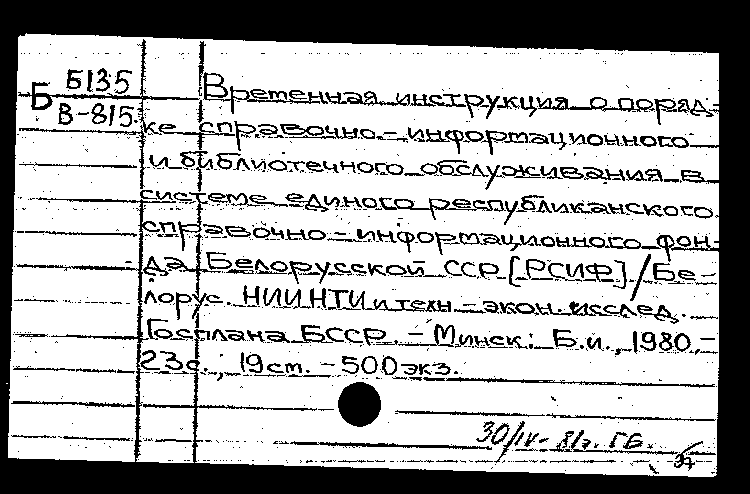 Б Б135
В-815
Временная инструкция о поряд-
ке справочно-информационного
и библиотечного обслуживания в
системе единого республиканского
справочно-информационного фон-
да Белорусской ССР [РСИФ] / Бе-
лорус. НИИ НТИ и техн-экон. исслед.
Госплана БССР. - Минск: Б.и., 1980.-
23с.; 19 cm. - 500 экз.
30/IV- 81г. ГБ.